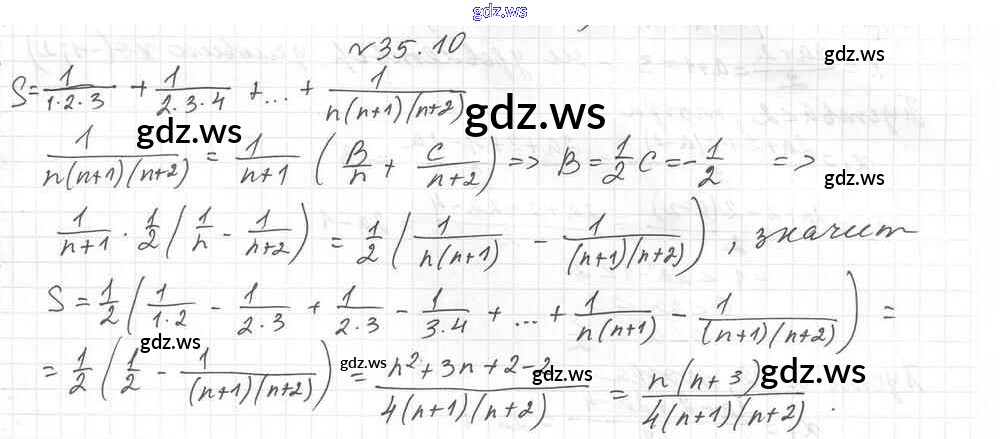 gdz.ws
№35.10
S = 1/(1·2·3) + 1/(2·3·4) + ... + 1/(n(n+1)(n+2)) gdz.ws gdz.ws gdz.ws
1/(n(n+1)(n+2)) = 1/(n+1) (B/n + C/(n+2)) => B = 1/2 C = -1/2 => gdz.ws
1/(n+1) · 1/2 (1/n - 1/(n+2)) = 1/2 (1/(n(n+1)) - 1/((n+1)(n+2))), значит
S = 1/2 (1/(1·2) - 1/(2·3) + 1/(2·3) - 1/(3·4) + ... + 1/(n(n+1)) - 1/((n+1)(n+2))) = gdz.ws
= 1/2 (1/2 - 1/((n+1)(n+2))) = (n²+3n+2-2)/(4(n+1)(n+2)) = n(n+3)/(4(n+1)(n+2)). gdz.ws gdz.ws gdz.ws